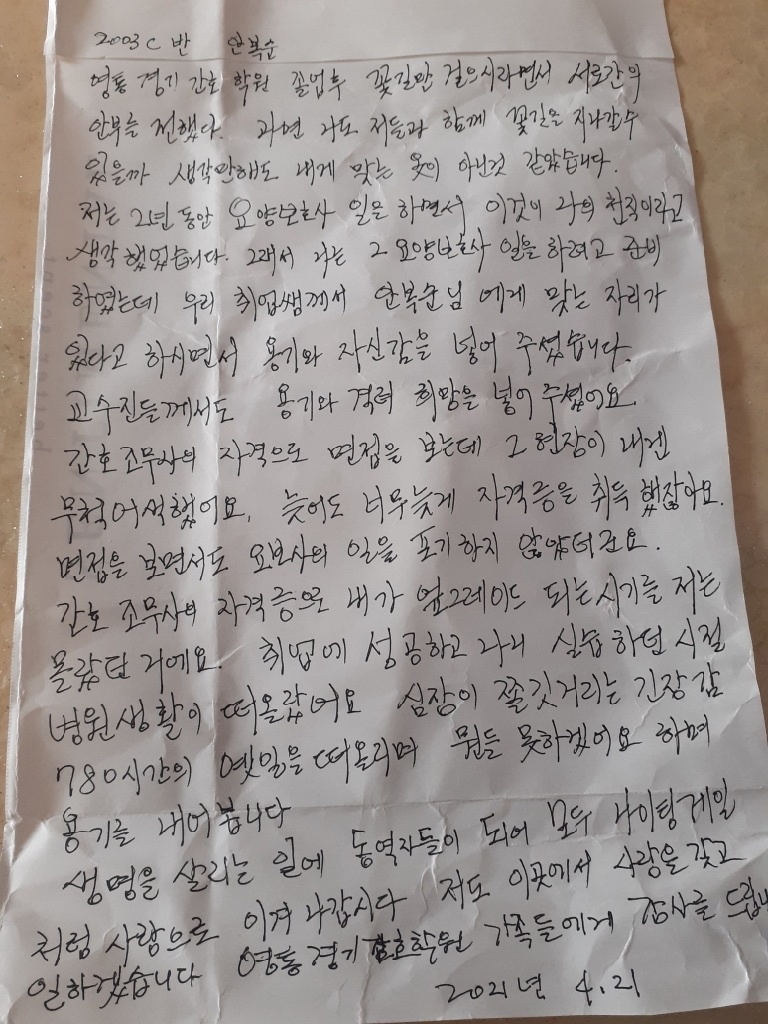 2003 C 반 안복순
영통 경기 간호 학원 졸업후 꽃길만 걸으시라면서 서로간의
안부를 전했다. 과연 나도 저들과 함께 꽃길을 지나갈수
있을까 생각만해도 내게 맞는 옷이 아닌것 같았습니다.
저는 21년 동안 요양보호사 일을 하면서 이것이 나의 천직이라고
생각했었습니다. 그래서 나는 그 요양보호사 일을 하려고 준비
하였는데 우리 취업쌤께서 안복순님 에게 맞는 자리가
있다고 하시면서 용기와 자신감을 넣어 주셨습니다.
교수진들께서도 용기와 격려 희망을 넣어 주셨어요
간호조무사의 자격으로 면접을 보는데 그 현장이 내겐
무척어색했어요. 늦어도 너무늦게 자격증을 취득 했잖아요.
면접을 보면서도 요보사의 일을 포기하지 않았더라요.
간호 조무사의 자격증으로 내가 엎그레이드 되는시기를 저는
몰랐던 거에요. 취업에 성공하고 나니 실습 하던 시절
병원생활이 떠올랐어요 심장이 쫄깃거리는 긴장감
780시간의 옛일을 떠올리며 뭔들 못하겠어요 하며
용기를 내어봅니다
생명을 살리는 일에 동역자들이 되어 모두 나이팅게일
처럼 사랑으로 이겨 나갑시다 저도 이곳에서 사랑을 갖고
일하겠습니다 영통 경기 간호학원 가족들에게 감사를 드립니
2021년 4.21